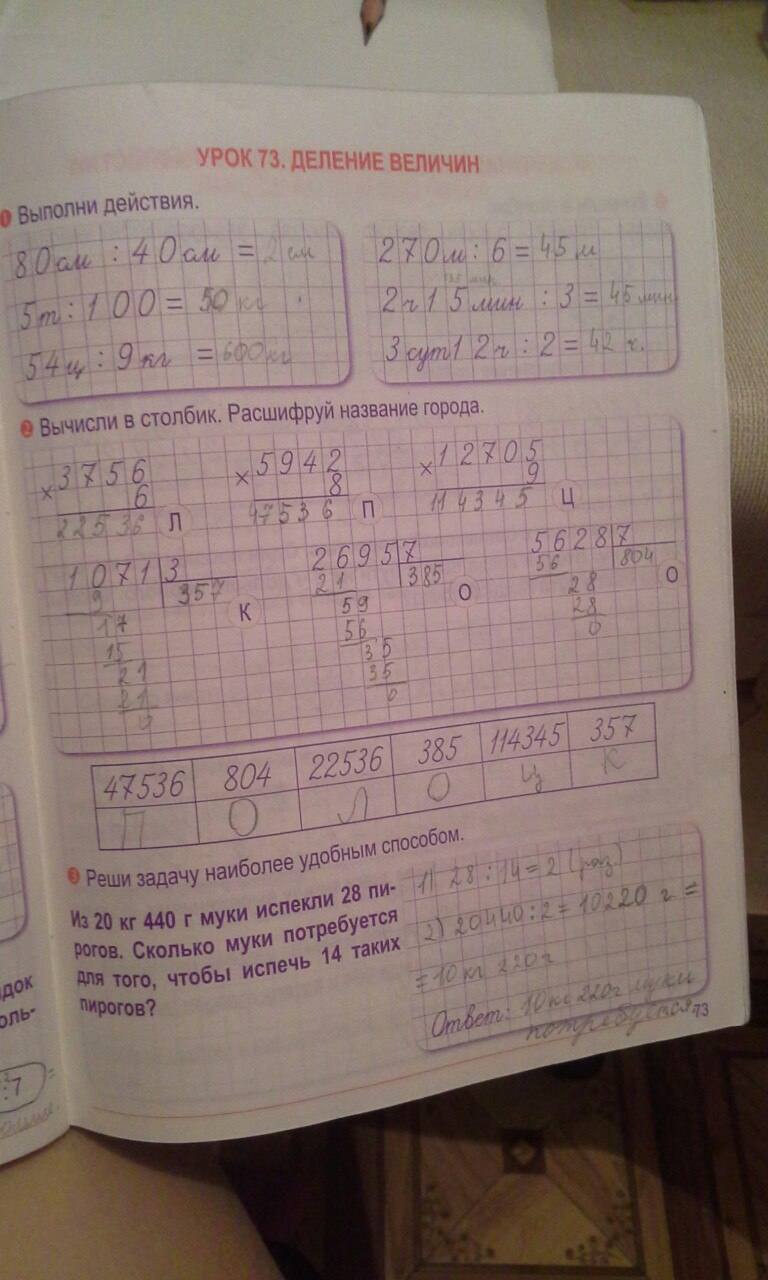 УРОК 73. ДЕЛЕНИЕ ВЕЛИЧИН
1 Выполни действия.
80 см : 40 см = 2 см
5 т : 100 = 50 кг
54 ц : 9 кг = 600 кг
270 м : 6 = 45 м
135 мин
2 ч 15 мин : 3 = 45 мин
3 сут 12 ч : 2 = 42 ч.
2 Вычисли в столбик. Расшифруй название города.
× 3756
6
22536 Л
× 5942
8
47536 П
× 12705
9
114345 Ц
1071 3
9 357
17 К
15
21
21
0
2695 7
21 385
59 О
56
35
35
0
5628 7
56 804
28 О
28
0
47536 804 22536 385 114345 357
П О Л О Ц К
3 Реши задачу наиболее удобным способом.
Из 20 кг 440 г муки испекли 28 пи-
рогов. Сколько муки потребуется
для того, чтобы испечь 14 таких
пирогов?
1) 28 : 14 = 2 (раз)
2) 20440 : 2 = 10220 г =
= 10 кг 220 г
Ответ: 10 кг 220 г муки
потребуется
73
ядок
оль-
:7 =